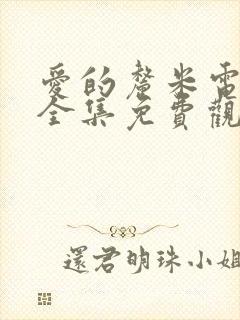 愛的釐米電
全集免費觀
還君明珠小姐